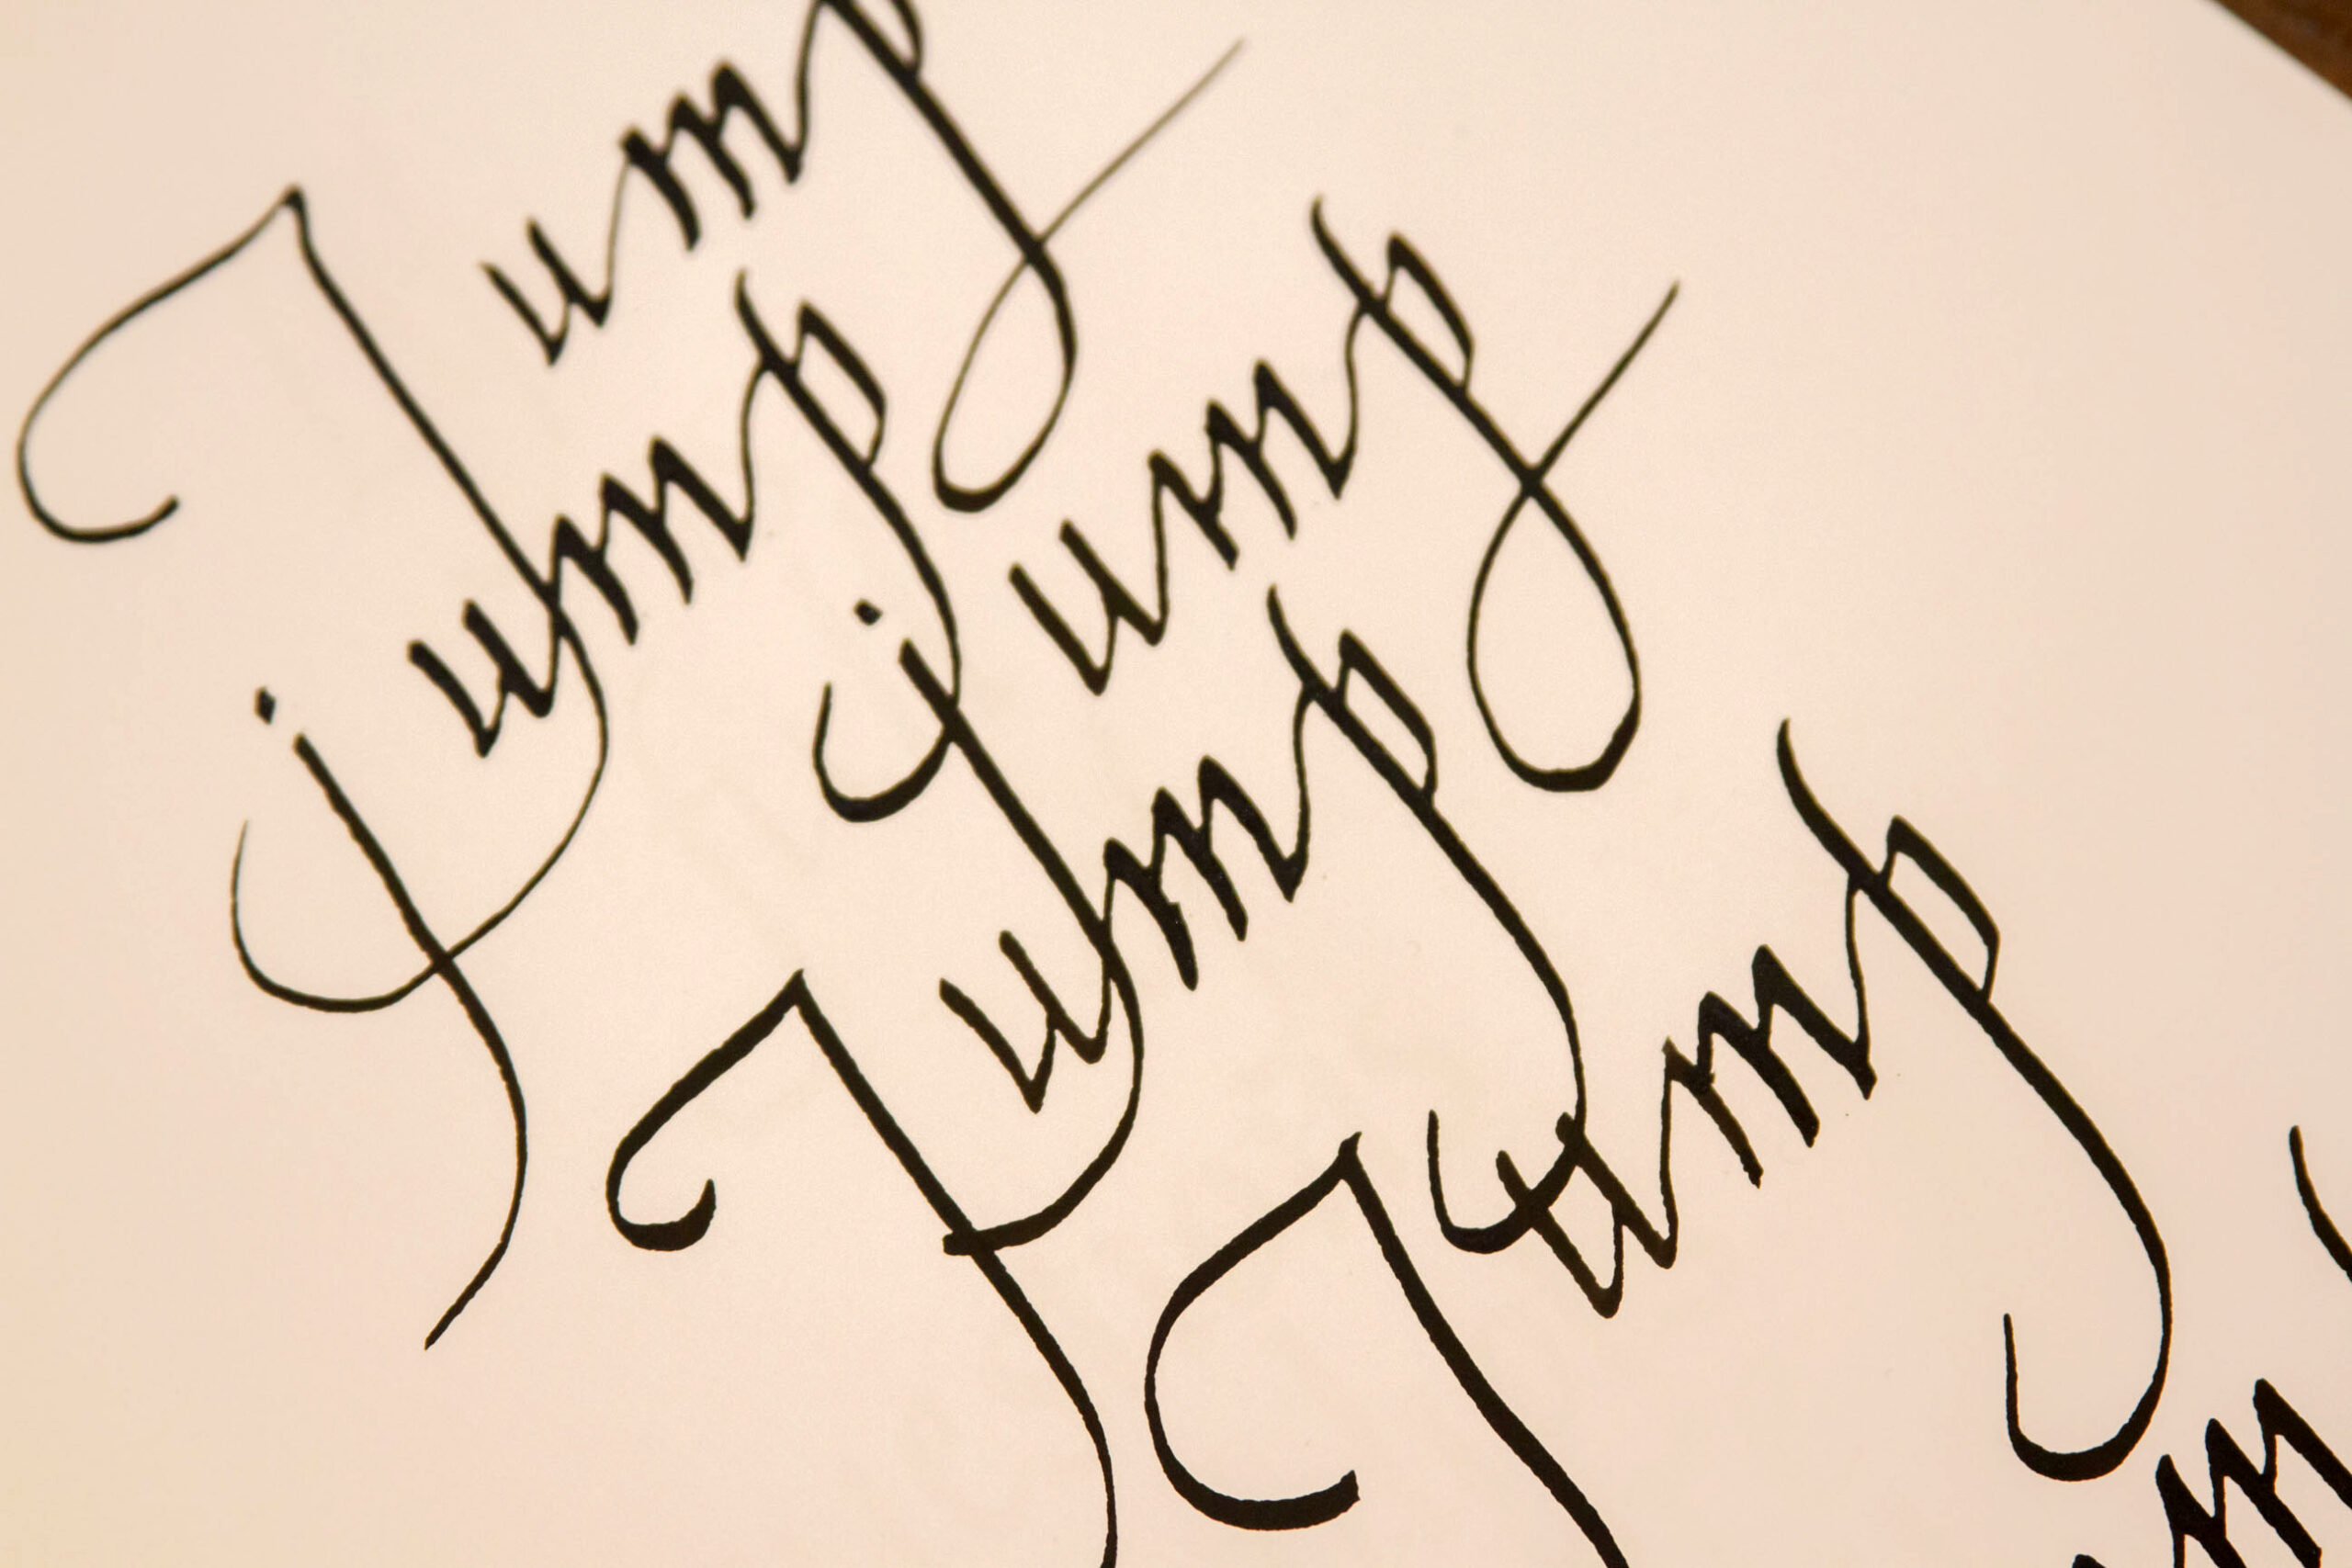 Jump
jump
jump
Jump
Jump